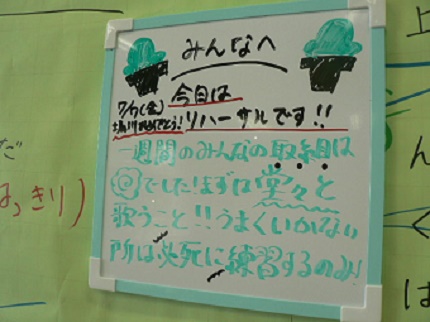 みんなへ
7/17(金) 今日は
リハーサルです!!
一週間のみんなの取組は
でしたほずは堂々と
歌うこと!!うまくいかない
所は必死に練習するのみ!
上
だ
はっきり)
ん
は